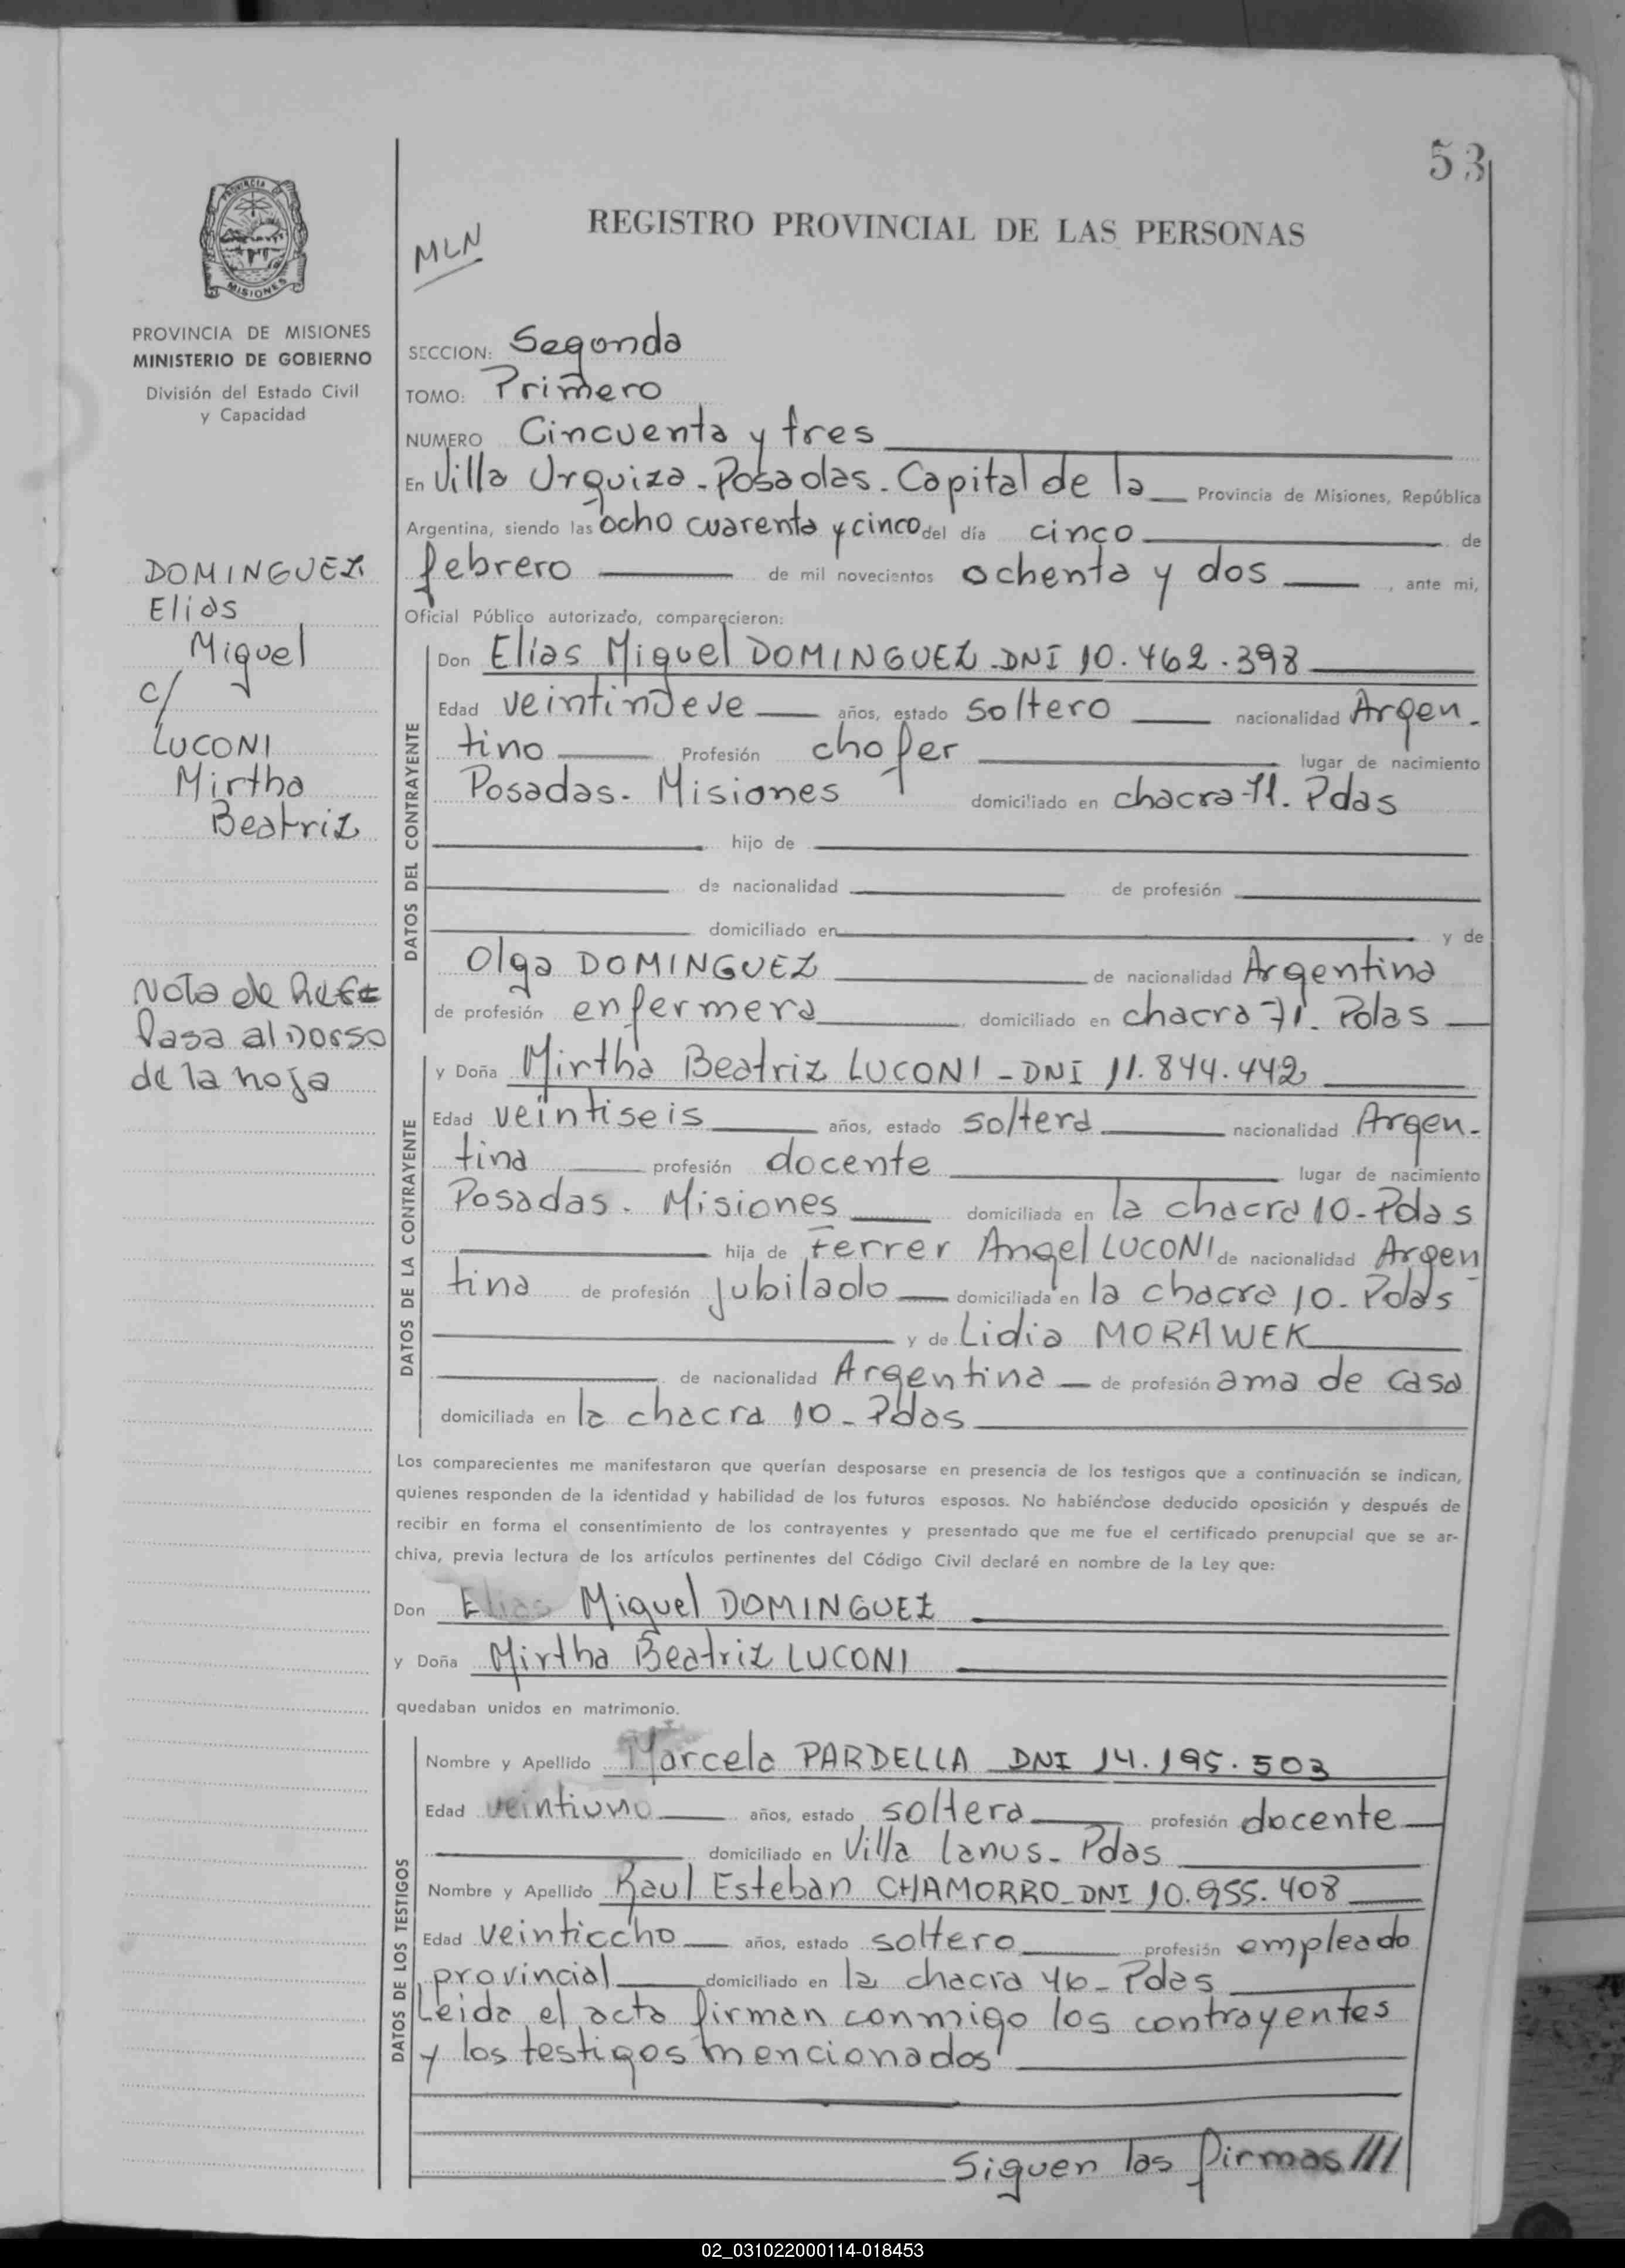 53
MLN
REGISTRO PROVINCIAL DE LAS PERSONAS
PROVINCIA MISIONES
PROVINCIA DE MISIONES
MINISTERIO DE GOBIERNO
División del Estado Civil
y Capacidad
DOMINGUEZ
Elias
Miguel
c/
LUCONI
Mirtha
Beatriz
Nota de
Pasa al Dorso
de la hoja
SECCION: Segunda
TOMO: Primero
NUMERO Cincuenta y tres
En Villa Urquiza - Posadas - Capital de la Provincia de Misiones, República
Argentina, siendo las ocho cuarenta y cinco del día cinco de
febrero de mil novecientos ochenta y dos, ante mi,
Oficial Público autorizado, comparecieron:
DATOS DEL CONTRAYENTE
Don Elias Miguel DOMINGUEZ - DNI 10.462.398
Edad veintinueve años, estado soltero nacionalidad Argen-
tino Profesión chofer lugar de nacimiento
Posadas - Misiones domiciliado en chacra 71. Pdas
hijo de
de nacionalidad de profesión
domiciliado en y de
Olga DOMINGUEZ de nacionalidad Argentina
de profesión enfermera domiciliado en chacra 71. Pdas
DATOS DE LA CONTRAYENTE
y Doña Mirtha Beatriz LUCONI - DNI 11.844.442
Edad veintiseis años, estado soltera nacionalidad Argen-
tina profesión docente lugar de nacimiento
Posadas - Misiones domiciliada en la chacra 10 - Pdas
hija de Ferrer Angel LUCONI de nacionalidad Argen
tina de profesión jubilado domiciliada en la chacra 10 - Pdas
y de Lidia MORAWEK
de nacionalidad Argentina de profesión ama de casa
domiciliada en la chacra 10 - Pdas
Los comparecientes me manifestaron que querían desposarse en presencia de los testigos que a continuación se indican,
quienes responden de la identidad y habilidad de los futuros esposos. No habiéndose deducido oposición y después de
recibir en forma el consentimiento de los contrayentes y presentado que me fue el certificado prenupcial que se ar-
chiva, previa lectura de los artículos pertinentes del Código Civil declaré en nombre de la Ley que:
Don Elias Miguel DOMINGUEZ
y Doña Mirtha Beatriz LUCONI
quedaban unidos en matrimonio.
DATOS DE LOS TESTIGOS
Nombre y Apellido Marcela PARDELLA DNI 14.195.503
Edad veintiuno años, estado soltera profesión docente
domiciliado en Villa Lanus - Pdas
Nombre y Apellido Raul Esteban CHAMORRO - DNI 10.955.408
Edad veintiocho años, estado soltero profesión empleado
provincial domiciliado en la chacra 46 - Pdas
Leida el acta firman conmigo los contrayentes
y los testigos mencionados
Siguen las firmas ///
02_031022000114-018453